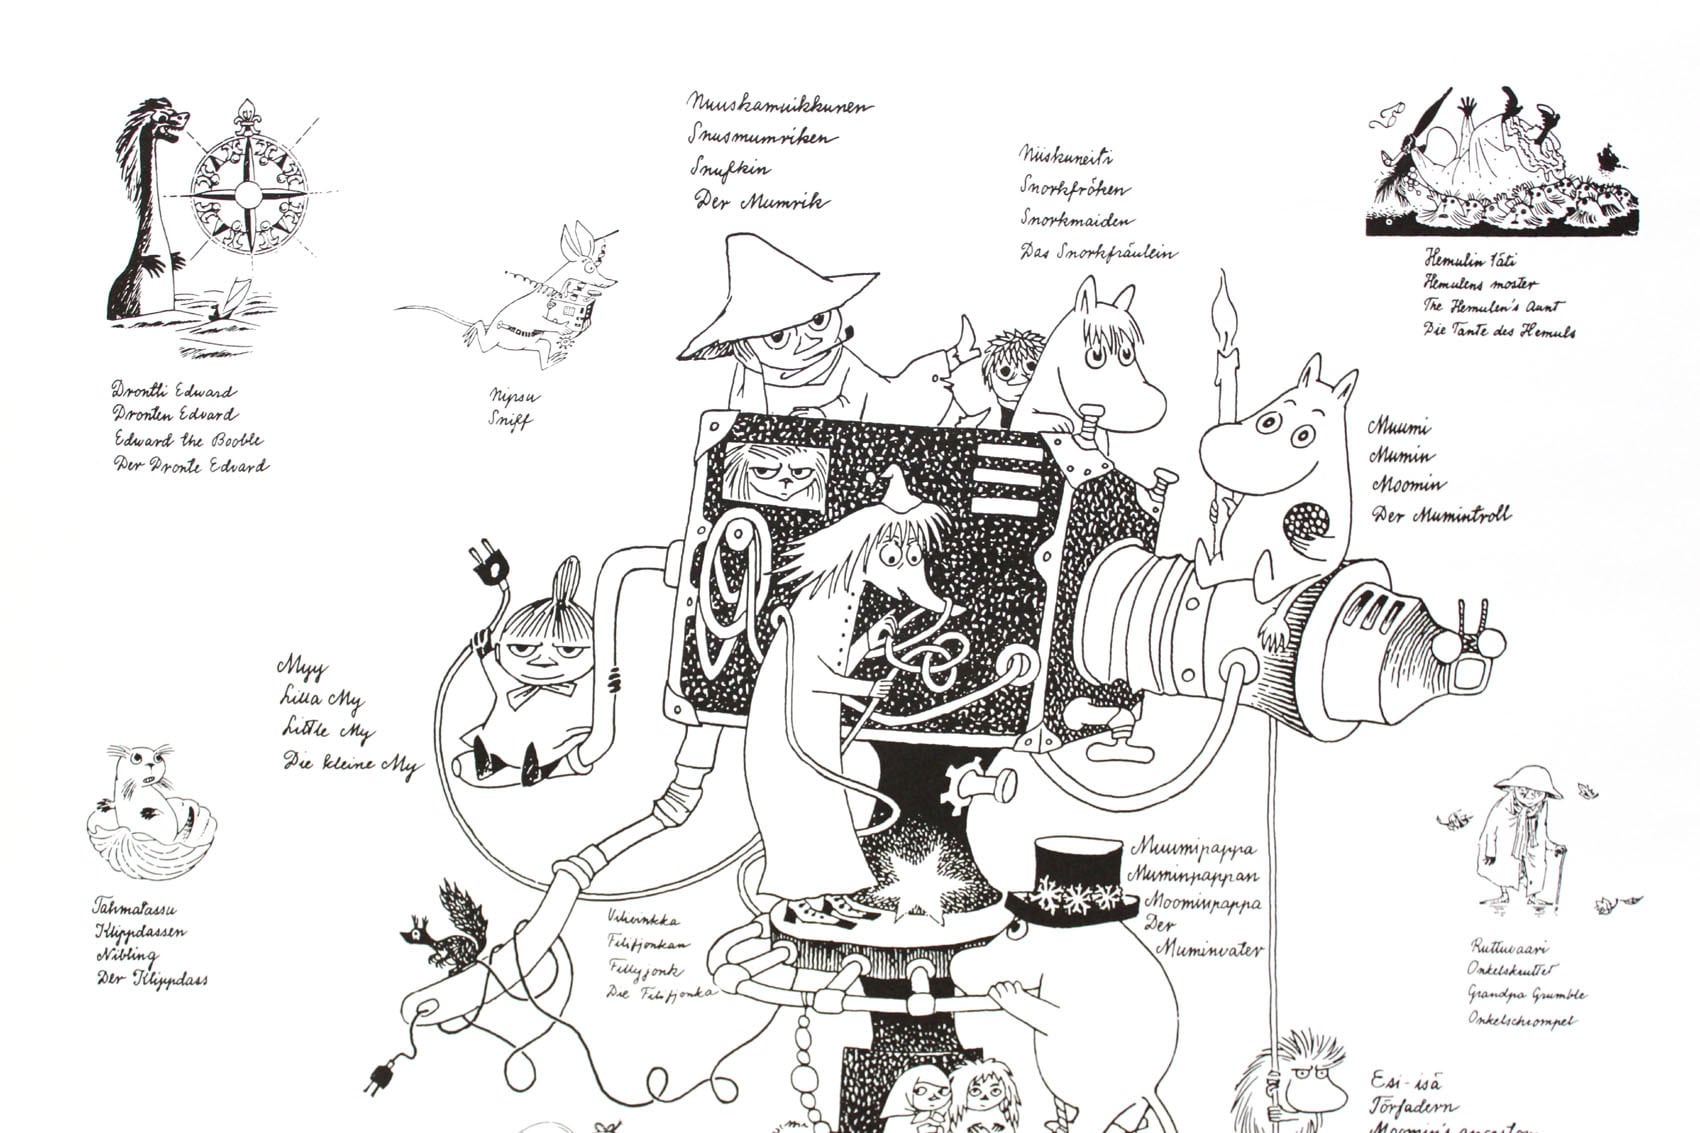 Nuuskamuikkunen
Snusmumriken
Snufkin
Der Mumrik
Niiskuneiti
Snorkfröken
Snorkmaiden
Das Snorkfräulein
Hemulin täti
Hemulens moster
The Hemulen's Aunt
Die Tante des Hemuls
Drontti Edward
Dronten Edvard
Edward the Booble
Der Dronte Edvard
Nipsu
Sniff
Muumi
Mumin
Moomin
Der Mumintroll
Myy
Lilla My
Little My
Die kleine My
Muumipappa
Muminpappan
Moominpappa
Der
Muminvater
Tahmatassu
Klippdassen
Nibling
Der Klippdass
Vilivinkka
Filifjonkan
Fillyjonk
Die Filifjonka
Ruttuvaari
Onkelskruttet
Grandpa Grumble
Onkelschrompel
Esi-isä
Förfadern
Moomin's ancestor